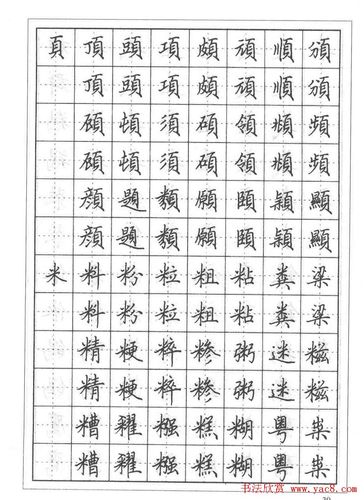 頁 頂 頭 項 頗 頑 順 頒
頂 頭 項 頗 頑 順 頒
頓 須 碩 領 頻
頓 須 碩 領 頻
顔 題 類 願 頤 穎 顯
顔 題 類 願 頤 穎 顯
米 料 粉 粒 粗 粘 粪 梁
料 粉 粒 粗 粘 粪 梁
精 粳 粹 糝 粥 迷 糍
精 粳 粹 糝 粥 迷 糍
糟 糨 糕 糊 粤 粜
糟 糨 糕 糊 粤 粜
书法欣赏www.yac8.com